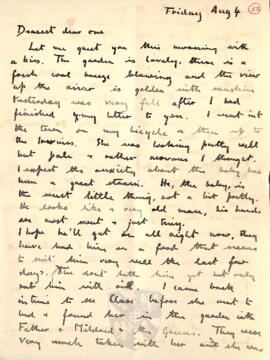 Friday Aug 4
52
Dearest dear one
Let me greet you this morning with
a kiss. The garden is lovely, there is a
fresh cool breeze blowing and the view
up the river is golden with sunshine.
Yesterday was very full after I had
finished young letter to you. I went into
the town on my bicycle & then up to
the . She was looking pretty well
but pale & rather nervous I thought.
I expect the anxiety about the baby has
been a great strain. He, the baby, is
the sweetest little thing, not a bit pretty.
He looks like a very old man, his hands
are most sweet & just tiny.
I hope he'll get on all right now, they
have had him on a food that seems
to suit him very well the last few
days. They don't bath him yet but only
oil him with oil. I came back
in time to see before she went to
bed & found her in the garden with
Father & Mildred & the Greens. They were
very much taken with her and she was